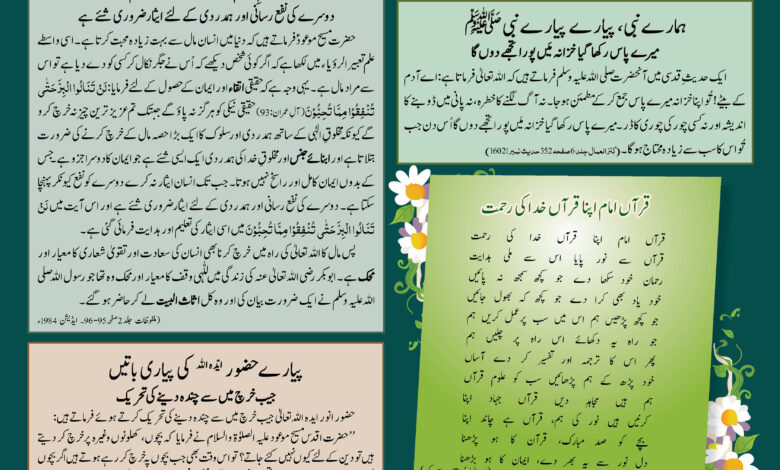 ہمارے نبی، پیارے پیارے نبی ﷺ
میرے پاس رکھا گیا خزانہ مَیں پورا تجھے دوں گا
ایک حدیثِ قدسی میں آنحضرت صلی اللہ علیہ وسلم فرماتے ہیں کہ اللہ تعالیٰ فرماتا ہے: اے آدم
کے بیٹے! تُو اپنا خزانہ میرے پاس جمع کر کے مطمئن ہو جا۔ نہ آگ لگنے کا خطرہ، نہ پانی میں ڈوبنے کا
اندیشہ اور نہ کسی چور کی چوری کا ڈر۔ میرے پاس رکھا گیا خزانہ مَیں پورا تجھے دوں گا اُس دن جب
تُو اس کا سب سے زیادہ محتاج ہوگا۔ (کنز العمال جلد 6 صفحہ 352 حدیث نمبر 16021)
دوسرے کی نفع رسانی اور ہمدردی کے لئے ایثار ضروری شئے ہے
حضرت مسیح موعودؑ فرماتے ہیں کہ دنیا میں انسان مال سے بہت زیادہ محبت کرتا ہے۔ اسی واسطے
علم تعبیر الرؤیا میں لکھا ہے کہ اگر کوئی شخص دیکھے کہ اُس نے جگر نکال کر کسی کو دے دیا ہے تو اس
سے مراد مال ہے۔ یہی وجہ ہے کہ حقیقی اتقاء اور ایمان کے حصول کے لئے فرمایا: لَنْ تَنَالُوا الْبِرَّ حَتّٰى
تُنْفِقُوْا مِمَّا تُحِبُّوْنَ (آل عمران:93) حقیقی نیکی کو ہرگز نہ پاؤ گے جبتک تم عزیز ترین چیز نہ خرچ کرو
گے کیونکہ مخلوقِ الٰہی کے ساتھ ہمدردی اور سلوک کا ایک بڑا حصہ مال کے خرچ کرنے کی ضرورت
بتلاتا ہے اور ابنائے جنس اور مخلوقِ خدا کی ہمدردی ایک ایسی شئے ہے جو ایمان کا دوسرا جزو ہے جس
کے بدوں ایمان کامل اور راسخ نہیں ہوتا۔ جب تک انسان ایثار نہ کرے دوسرے کو نفع کیونکر پہنچا
سکتا ہے۔ دوسرے کی نفع رسانی اور ہمدردی کے لئے ایثار ضروری شئے ہے اور اس آیت میں لَنْ
تَنَالُوا الْبِرَّ حَتّٰى تُنْفِقُوْا مِمَّا تُحِبُّوْنَ میں اسی ایثار کی تعلیم اور ہدایت فرمائی گئی ہے۔
پس مال کا اللہ تعالیٰ کی راہ میں خرچ کرنا بھی انسان کی سعادت اور تقویٰ شعاری کا معیار اور
محک ہے۔ ابوبکر رضی اللہ تعالیٰ عنہ کی زندگی میں للّٰہی وقف کا معیار اور محک وہ تھا جو رسول اللہ صلی
اللہ علیہ وسلم نے ایک ضرورت بیان کی اور وہ کُل اثاث البیت لے کر حاضر ہو گئے۔
(ملفوظات جلد 2 صفحہ 95-96۔ ایڈیشن 1984ء)
قرآں امام اپنا قرآں خدا کی رحمت
قرآں امام اپنا قرآں خدا کی رحمت
قرآں سے نور پایا اس سے ملی ہدایت
رحمان خود سکھا دے جو کچھ سمجھ نہ پائیں
خود یاد بھی کرا دے جو کچھ کہ بھول جائیں
جو کچھ پڑھیں ہم اس میں سب پر عمل کریں ہم
جو راہ یہ دکھائے اس راہ پر چلیں ہم
پھر اس کا ترجمہ اور تفسیر کر دے آساں
خود پڑھ کے ہم پڑھائیں سب کو علومِ قرآں
ہم ہیں مجاہدین قرآں جہاد اپنا
کرنیں ہیں نور کی ہم، قرآں ہے چاند اپنا
بچے کو صد مبارک، قرآن کا ہو پڑھنا
دل نور سے یہ بھر دے، ایمان کا ہو بڑھنا
پیارے حضور ایدہ اللہ کی پیاری باتیں
جیب خرچ میں سے چندہ دینے کی تحریک
حضورِ انور ایدہ اللہ تعالیٰ جیب خرچ میں سے چندہ دینے کی تحریک کرتے ہوئے فرماتے ہیں:
’’حضرت اقدس مسیح موعود علیہ الصلوٰۃ والسلام نے فرمایا کہ بچوں، کھلونوں وغیرہ پر خرچ کر دیتے
ہیں تو دین کے لئے کیوں نہیں کئے جاتے؟ تو اس وقت بھی جب بچوں پہ خرچ کر رہے ہوتے ہیں اگر بچوں